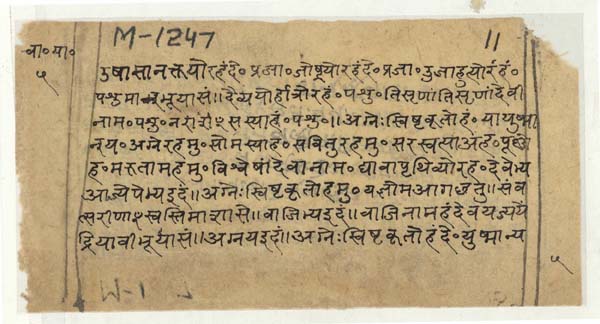 M-1247
११
चा॰मा॰
५
उषासानक्तयोरहंदे॰ प्रजा॰ जोष्ट्र्योरहंदे॰ प्रजा॰ उजाहुत्योर्रहं॰
पशुमान्भूयासं॥ दैव्ययोर्होत्रोरहं॰ पशु॰ तिसृणांतिसृणांदेवी
नाम॰ पशु॰ नराशꣳसस्याहं॰ पशु॰॥ अग्नेःस्विष्टकृतोहं॰ यायुष्मा
न्य॰ अग्नेरहमु॰ सोमस्याहं॰ सवितुरहमु॰ सरस्वत्याअहं॰ पूष्णो
हं॰ मरुतामहमु॰ विश्वेषांदेवानाम॰ द्यावापृथिव्योरहं॰ देवेभ्य
आज्यपेभ्यइदं॥ अग्नेःस्विष्टकृतोहमु॰ यज्ञोमआगछतु॥ संव
त्सरीणाꣳस्वस्तिमाशासे॥ वाजिभ्यइदं॥ वाजिनामहंदेवयज्ययें
द्रियावीभूयासं॥ अग्नयइदं॥ अग्नेःस्विष्टकृतोहंदे॰ युष्मान्य
५